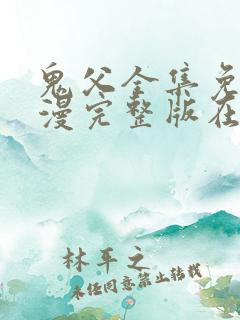 鬼父全集免
漫完整版在
林平之
未经同意禁止转载